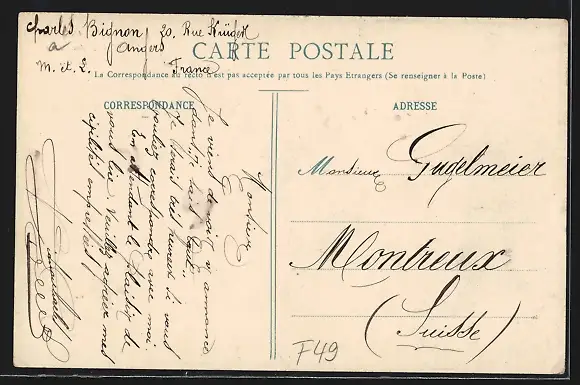 Charles Bignon 20. Rue Krüger
à Angers
M. et L. France
CARTE POSTALE
La Correspondance au recto n'est pas acceptée par tous les Pays Etrangers (Se renseigner à la Poste)
CORRESPONDANCE
ADRESSE
Monsieur
Je viens de voir v/ annonce
dans
Je serais très heureux si vous
vouliez correspondre avec moi.
En attendant le plaisir de
vous lire. Veuillez agréer mes
civilités empressées/
Monsieur Gugelmeier
Montreux
(Suisse)
F49